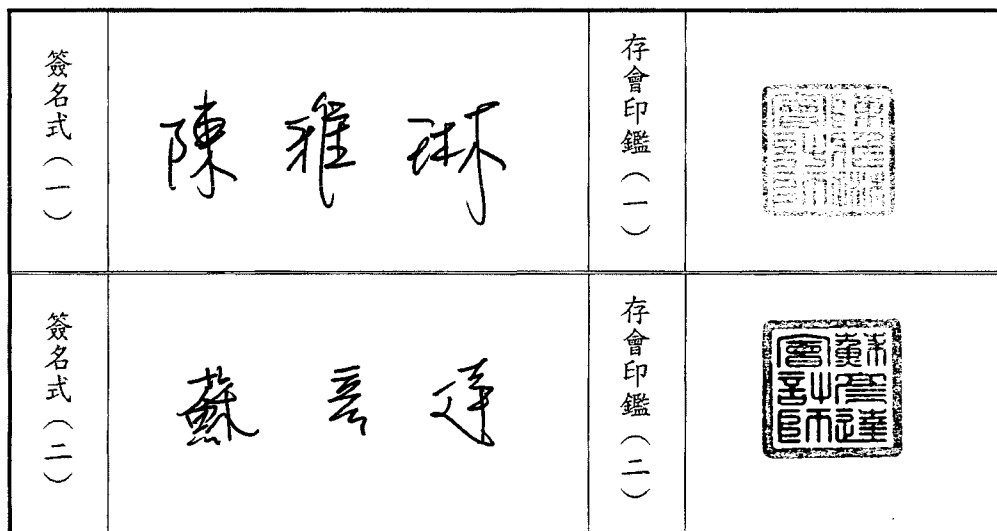 簽名式(一)
陳雅琳
存會印鑑(一)
簽名式(二)
蘇彥達
存會印鑑(二)
蘇彥達會計師